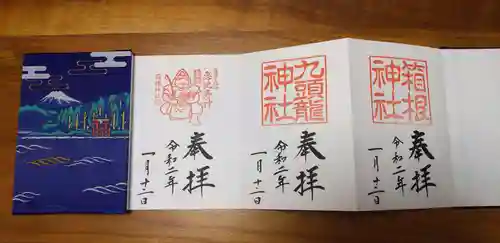 箱根
神社
奉拝
令和二年
一月十二日
九頭龍
神社
奉拝
令和二年
一月十二日
奉拝
令和二年
一月十二日